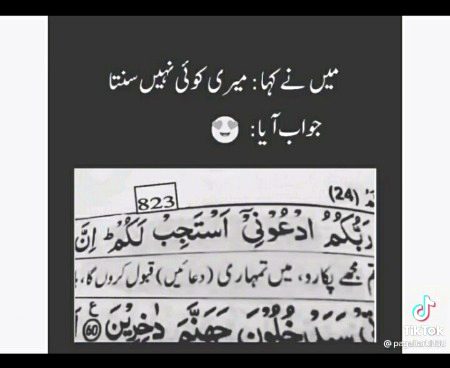 میں نے کہا: میری کوئی نہیں سنتا
جواب آیا: 😍
823
(24)
رَبُّكُمُ ادْعُوْنِیْۤ اَسْتَجِبْ لَكُمْ ؕ اِنَّ
مجھے پکارو، میں تمہاری (دعائیں) قبول کروں گا،
سَیَدْخُلُوْنَ جَهَنَّمَ دٰخِرِیْنَ ﴿60﴾
TikTok